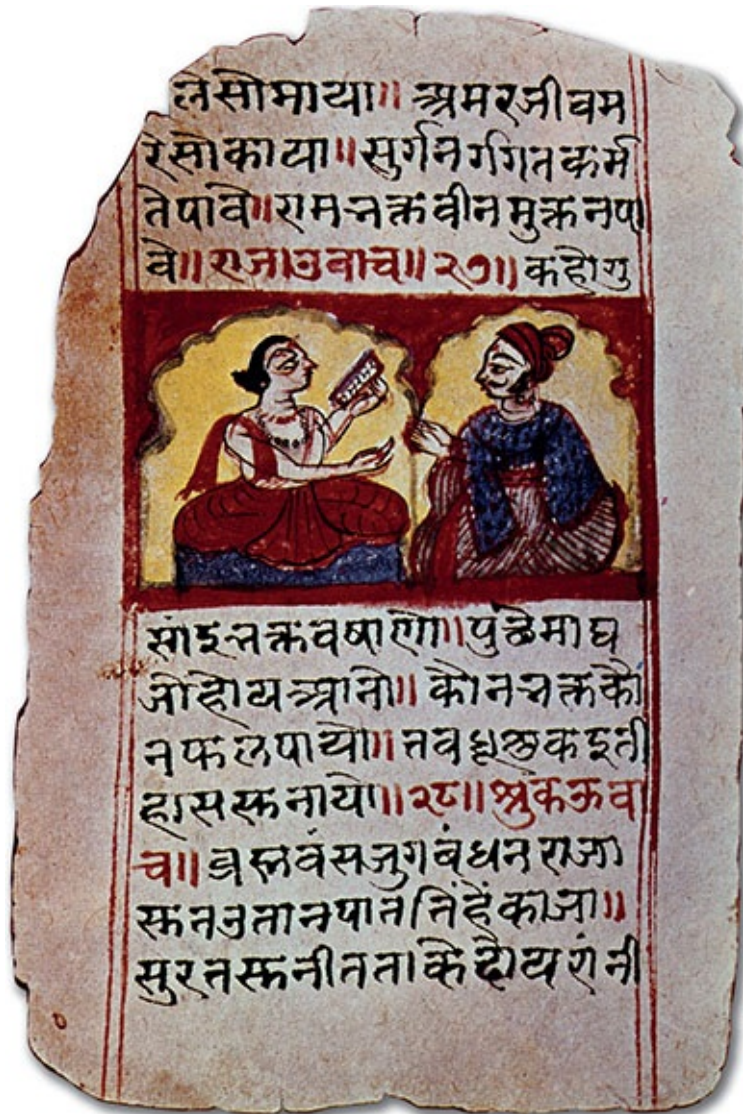 लेसोमाया॥ अमरजीवम
रेसोकाया॥ सुर्गनर्गगितकर्म
तेपावे॥ रामभक्तवीनमुक्तनपा
वे॥ राजाउवाच॥ २७॥ कहोगु
साईभक्तवषाणो॥ पुछेमाघ
जोहोयआनो॥ कौनभक्तकौ
नफलपायौ॥ तवध्रूक्तकइती
हाससुनायो॥ २८॥ श्रुकऊव
च॥ ब्रह्मवंसजुगबंधनराजा
सुतउतानपाततिंहेंकाजा॥
सुरतसुनीतताकैदोयरांनी